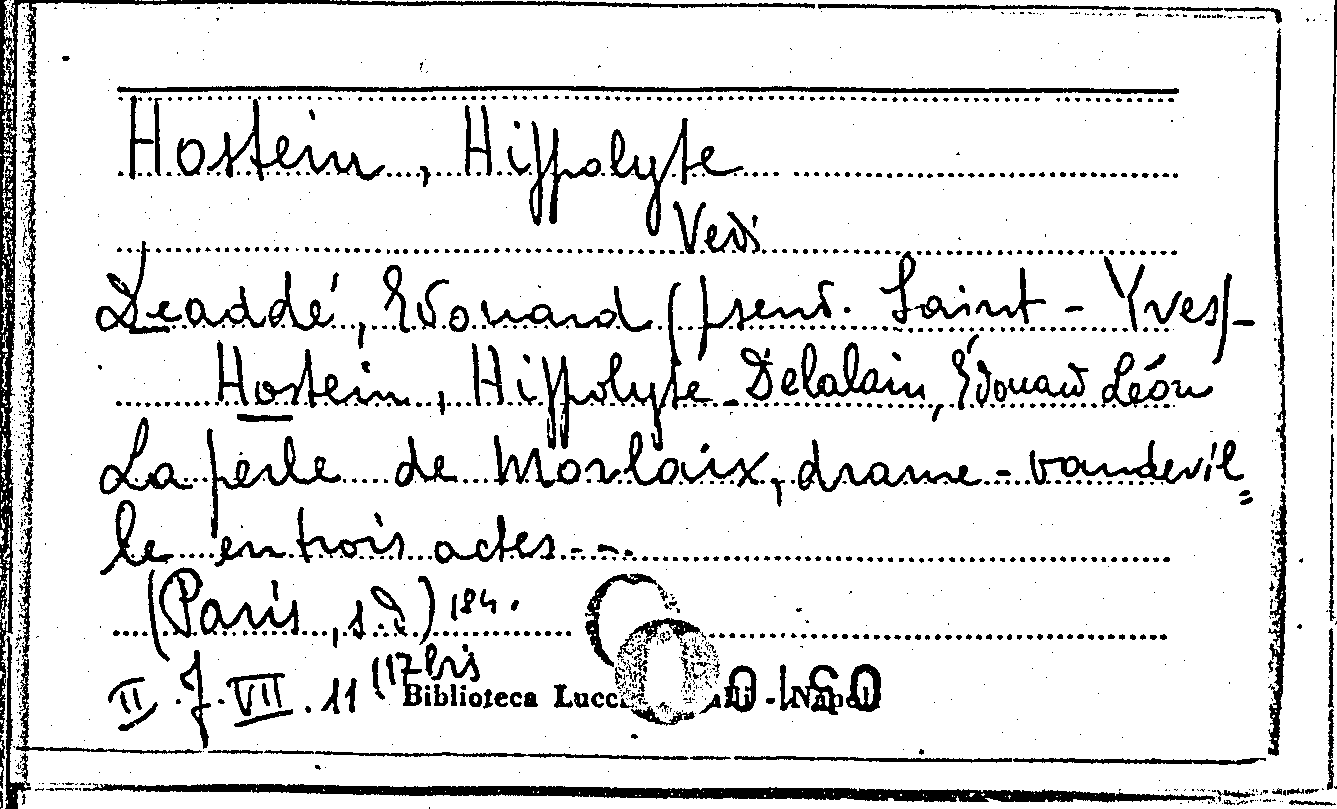 Hostein, Hippolyte
Vedi
Deaddé, Edouard (pseud. Saint-Yves)-
Hostein, Hippolyte - Delalain, Édouard Léon
La perle de Morlaix, drame-vaudevil=
le en trois actes---
(Paris, s.d.) 184.
II. J. VII. 11 (17 bis
Biblioteca Lucc - Napoli
0160